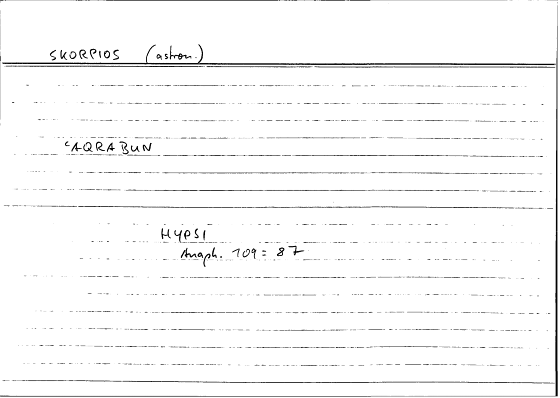 SKORPIOS (astron.)
ʿAQRABUN
HYPSI
Anaph. 109 = 87